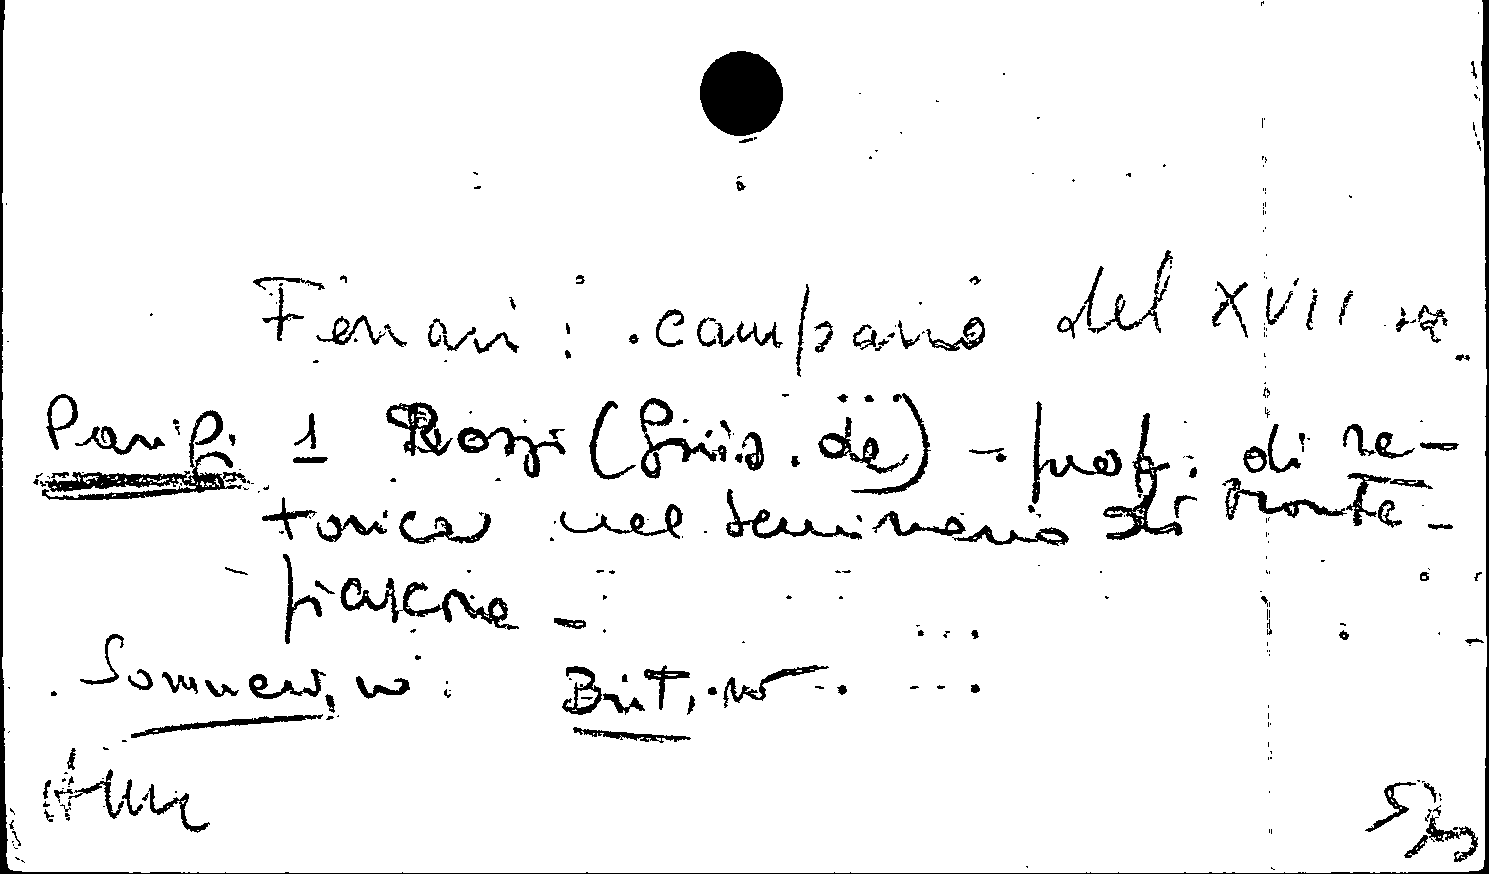 Ferrari: campano del XVII
Parigi 1 Rossi (Giis. de) - prof. di re-
torica nel seminario di Monte-
fiascone -
Sommerv, no. Brit, no